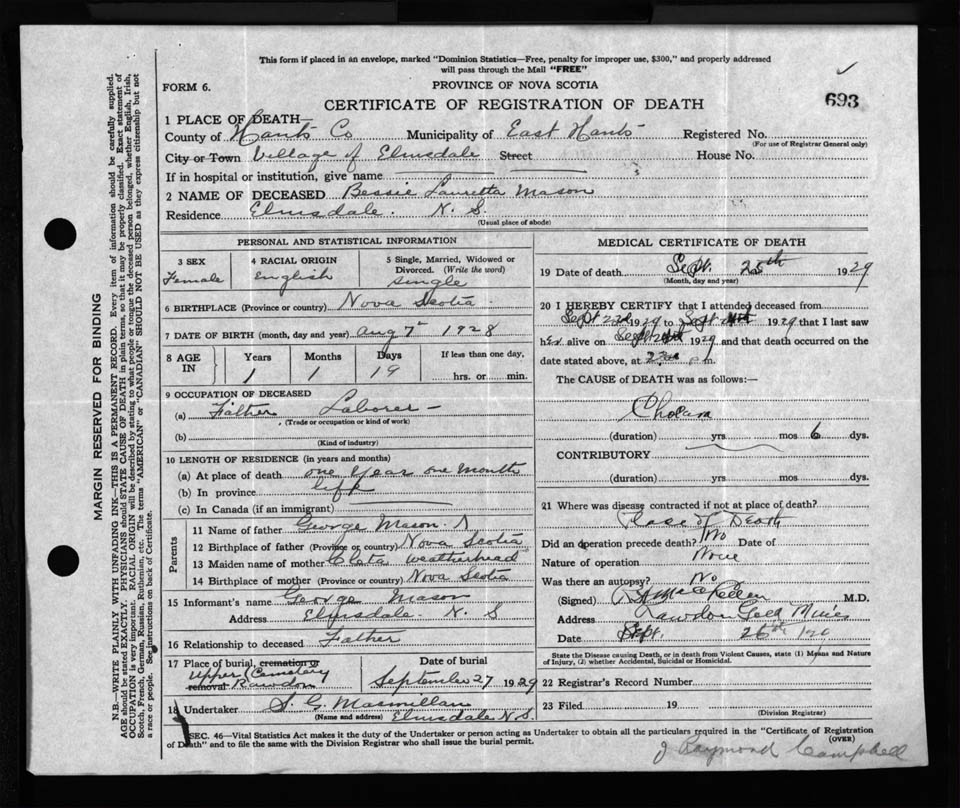 This form if placed in an envelope, marked "Dominion Statistics—Free, penalty for improper use, $300," and properly addressed
will pass through the Mail "FREE"
FORM 6.
PROVINCE OF NOVA SCOTIA
693
CERTIFICATE OF REGISTRATION OF DEATH
1 PLACE OF DEATH—
County of Hants Co Municipality of East Hants Registered No.
(For use of Registrar General only)
City or Town Village of Elmsdale Street House No.
If in hospital or institution, give name
2 NAME OF DECEASED Bessie Lauretta Mason
Residence Elmsdale. N. S.
(Usual place of abode)
PERSONAL AND STATISTICAL INFORMATION
3 SEX
Female
4 RACIAL ORIGIN
English
5 Single, Married, Widowed or
Divorced. (Write the word)
single
6 BIRTHPLACE (Province or country) Nova Scotia
7 DATE OF BIRTH (month, day and year) Aug 7th 1928
8 AGE
IN
Years Months Days If less than one day,
1 1 19 hrs. or min.
9 OCCUPATION OF DECEASED
(a) Father Laborer —
(Trade or occupation or kind of work)
(b)
(Kind of industry)
10 LENGTH OF RESIDENCE (in years and months)
(a) At place of death one year one month
(b) In province life
(c) In Canada (if an immigrant)
Parents
11 Name of father George Mason.
12 Birthplace of father (Province or country) Nova Scotia
13 Maiden name of mother Weatherhead
14 Birthplace of mother (Province or country) Nova Scotia
15 Informant's name George Mason
Address Elmsdale N. S
16 Relationship to deceased Father
17 Place of burial, cremation or
removal Upper Rawdon Cemetery
Date of burial
September 27 1929
18 Undertaker S. G. Macmillan
(Name and address) Elmsdale N.S.
MEDICAL CERTIFICATE OF DEATH
19 Date of death Sept. 25th 1929
(Month, day and year)
20 I HEREBY CERTIFY that I attended deceased from
Sept 22d 1929 to Sept 1929 that I last saw
her alive on Sept 1929 and that death occurred on the
date stated above, at 2 p m.
The CAUSE of DEATH was as follows:—
Cholera
(duration) yrs mos 6 dys.
CONTRIBUTORY
(duration) yrs. mos dys.
21 Where was disease contracted if not at place of death?
Place of Death
Did an operation precede death? No Date of
Nature of operation None
Was there an autopsy? No
(Signed) M.D.
Address Rawdon Gold Mines
Date Sept. 26th
State the Disease causing Death, or in death from Violent Causes, state (1) Means and Nature
of Injury, (2) whether Accidental, Suicidal or Homicidal.
22 Registrar's Record Number
23 Filed 19
(Division Registrar)
SEC. 46—Vital Statistics Act makes it the duty of the Undertaker or person acting as Undertaker to obtain all the particulars required in the "Certificate of Registration
of Death" and to file the same with the Division Registrar who shall issue the burial permit.
(OVER)
J Raymond Campbell
MARGIN RESERVED FOR BINDING
N.B.—WRITE PLAINLY WITH UNFADING INK—THIS IS A PERMANENT RECORD. Every item of information should be carefully supplied.
AGE should be stated EXACTLY. PHYSICIANS should STATE CAUSE OF DEATH in plain terms, so that it may be properly classified. Exact statement of
OCCUPATION is very important. RACIAL ORIGIN will be described by stating to what people or tongue the deceased person belonged, whether English, Irish,
Scotch, French, German, Russian, Ruthenian, etc. The terms "AMERICAN" or "CANADIAN" SHOULD NOT BE USED as they express citizenship but not
a race or people. See instructions on back of Certificate.